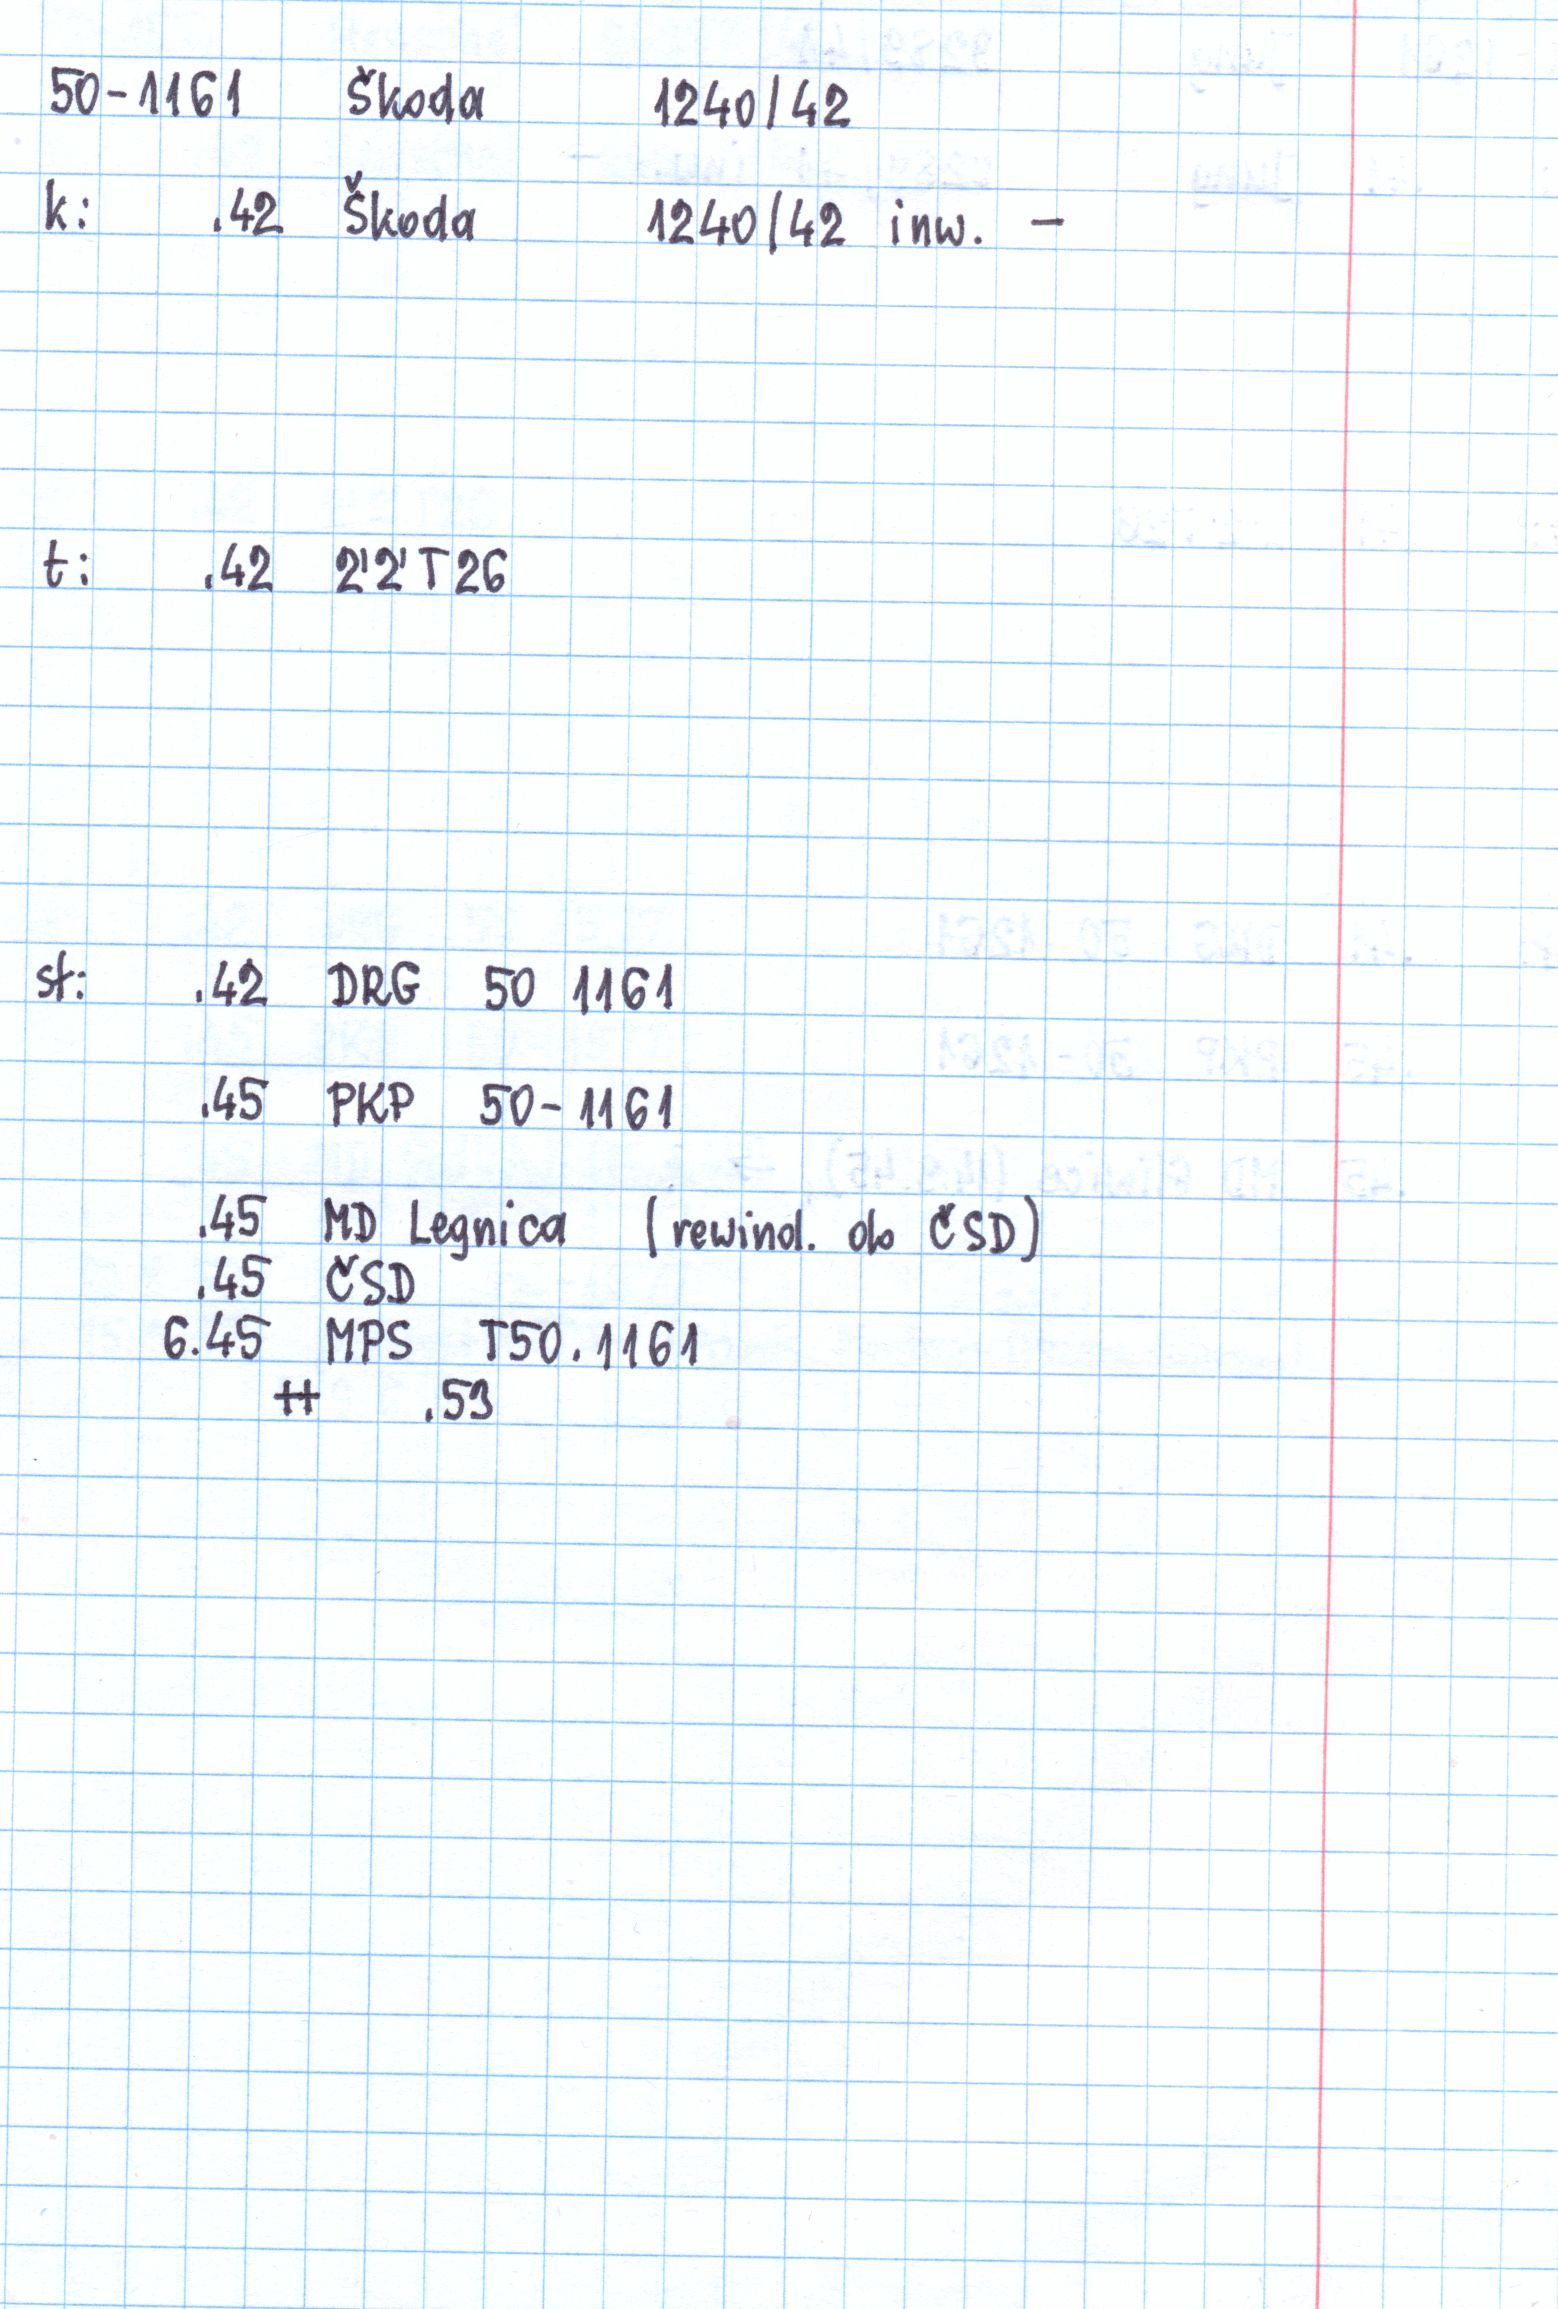 50-1161 Škoda 1240/42
k: .42 Škoda 1240/42 inw. -
t: .42 2'2'T26
st: .42 DRG 50 1161
.45 PKP 50-1161
.45 MD Legnica (rewind. do ČSD)
.45 ČSD
6.45 MPS T50.1161
++ .53